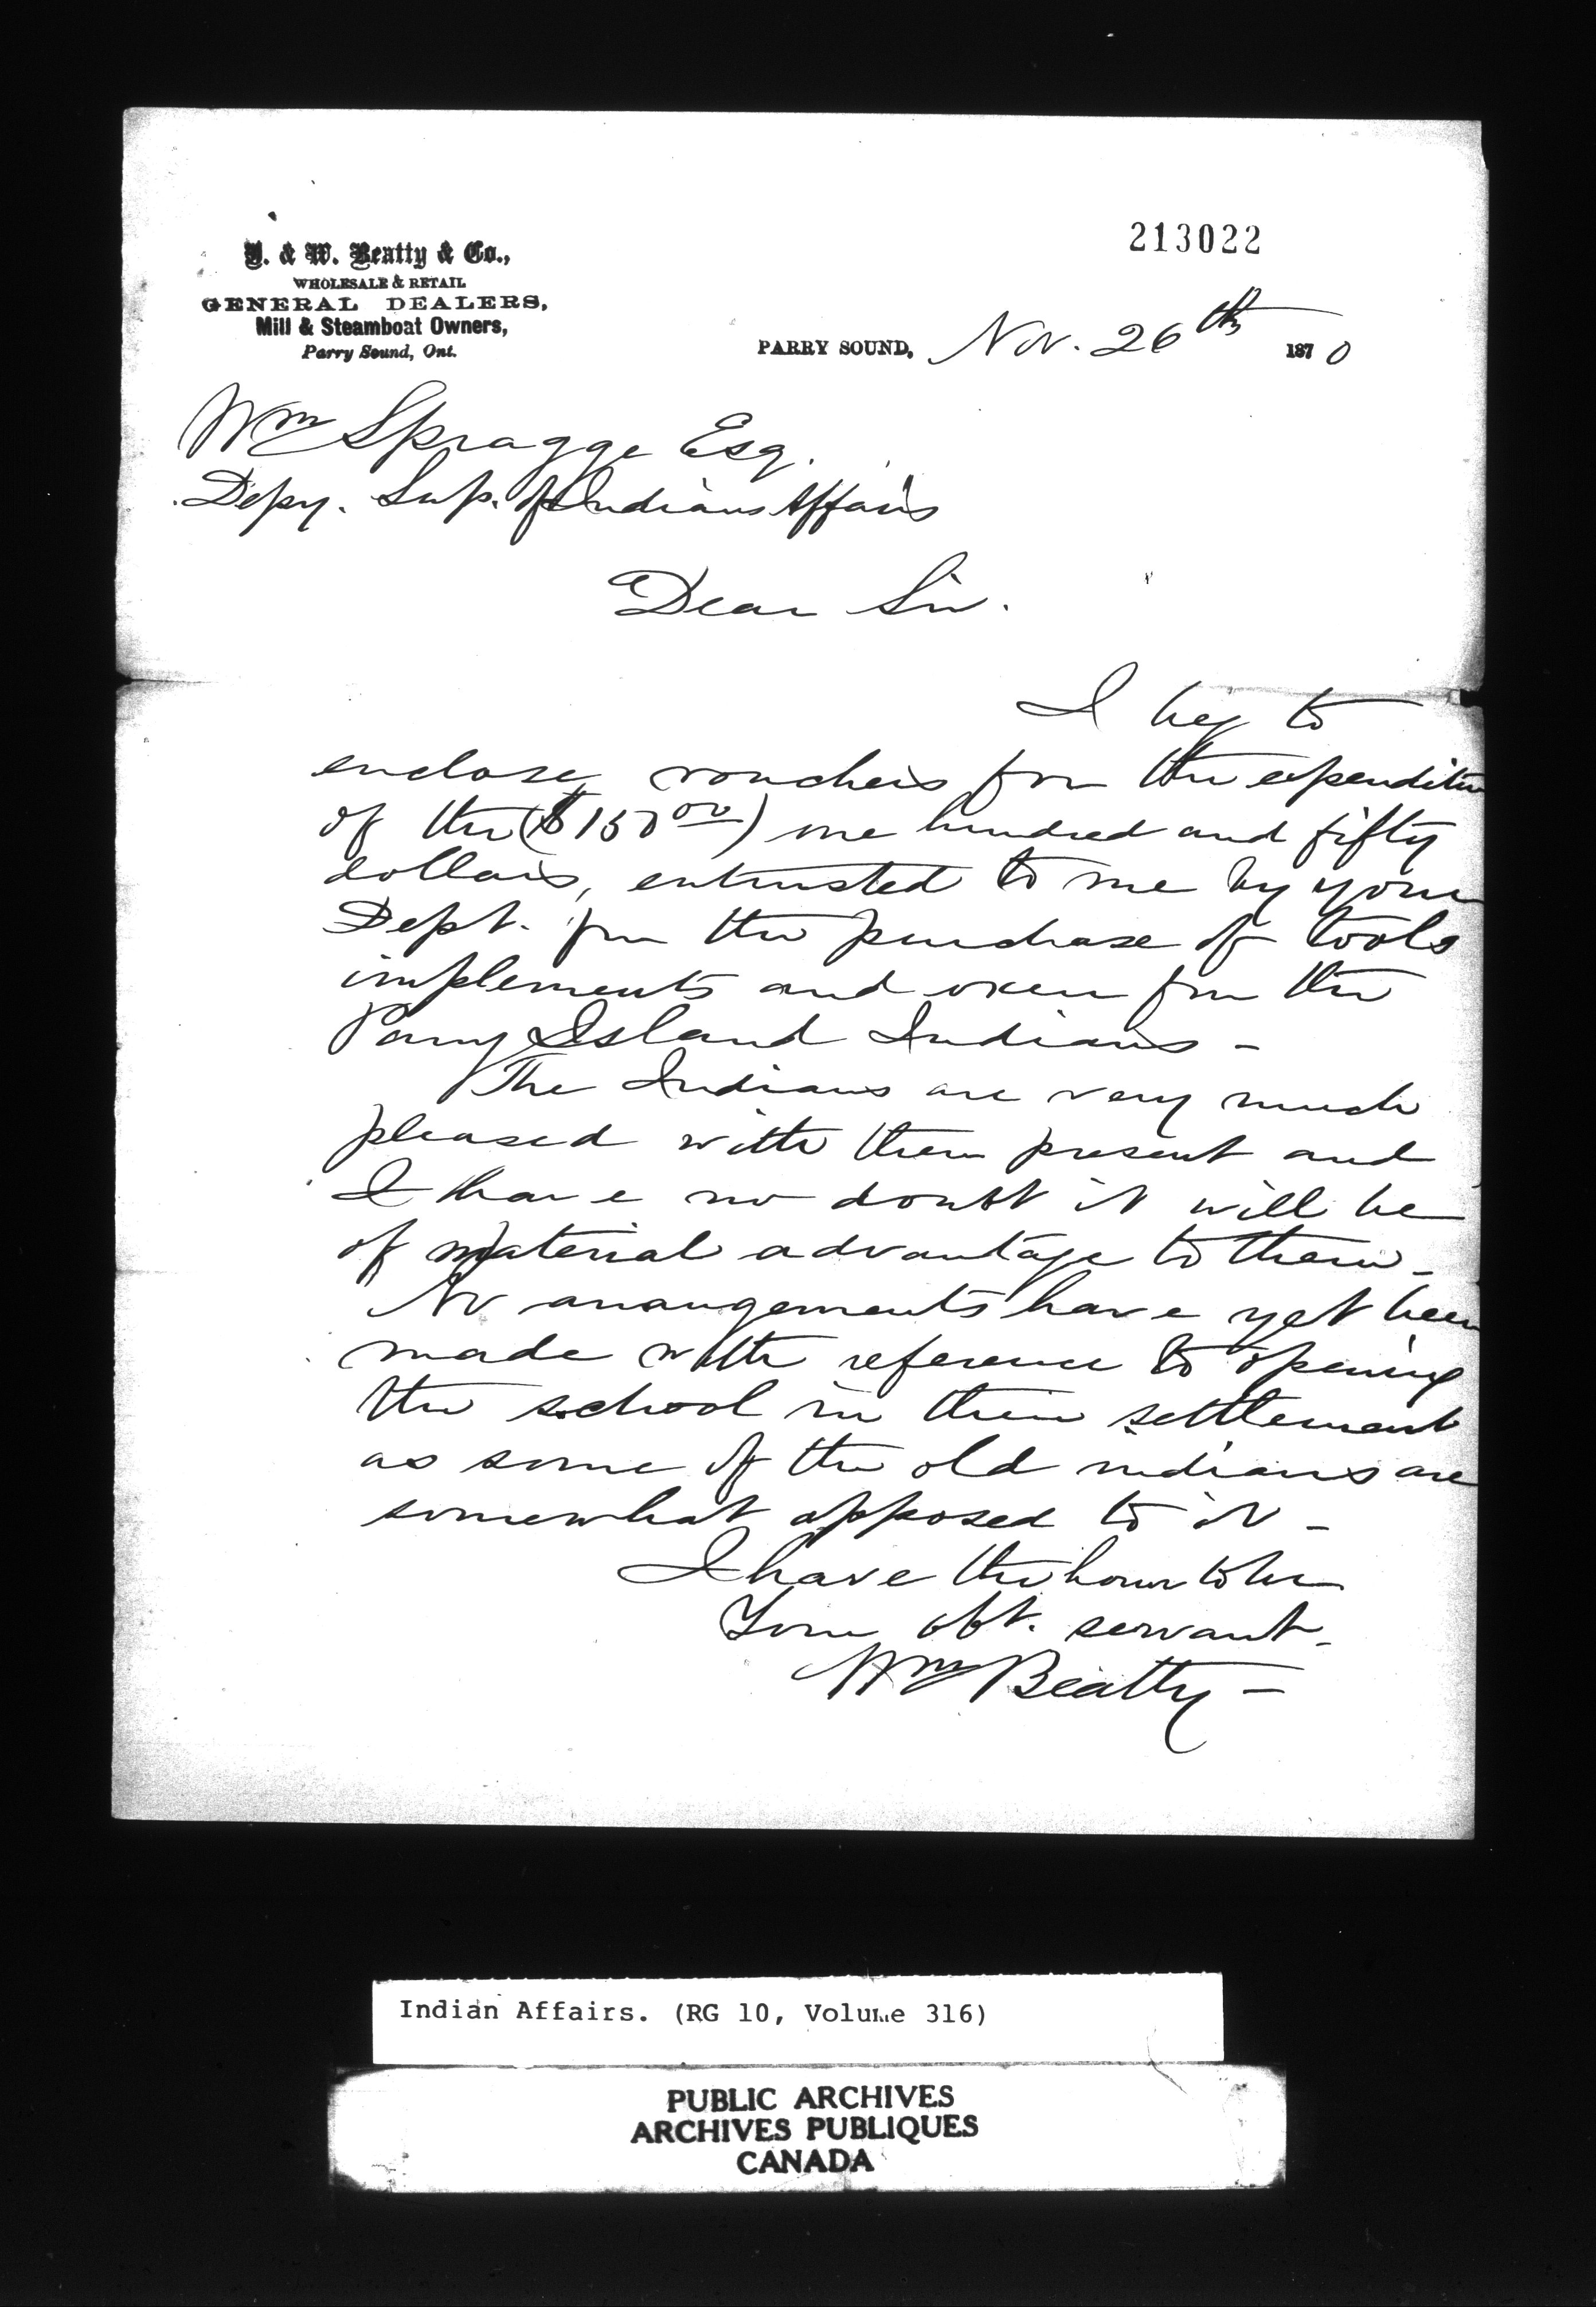 213022
J. & W. Beatty & Co.,
WHOLESALE & RETAIL
GENERAL DEALERS,
Mill & Steamboat Owners,
Parry Sound, Ont.
PARRY SOUND, Nov. 26th 1870
Wm Spragge Esq.
Depy. Sup. of Indians Affairs
Dear Sir.
I beg to
enclose vouchers for the expenditure
of the ($150 00) one hundred and fifty
dollars, entrusted to me by your
Dept. for the purchase of tools
implements and oxen for the
Parry Island Indians -
The Indians are very much
pleased with their present and
I have no doubt it will be
of material advantage to them -
No arrangements have yet been
made with reference to opening
the school in their settlement
as some of the old indians are
somewhat opposed to it -
I have the honor to be
Your obt. servant -
Wm Beatty -
Indian Affairs. (RG 10, Volume 316)
PUBLIC ARCHIVES
ARCHIVES PUBLIQUES
CANADA